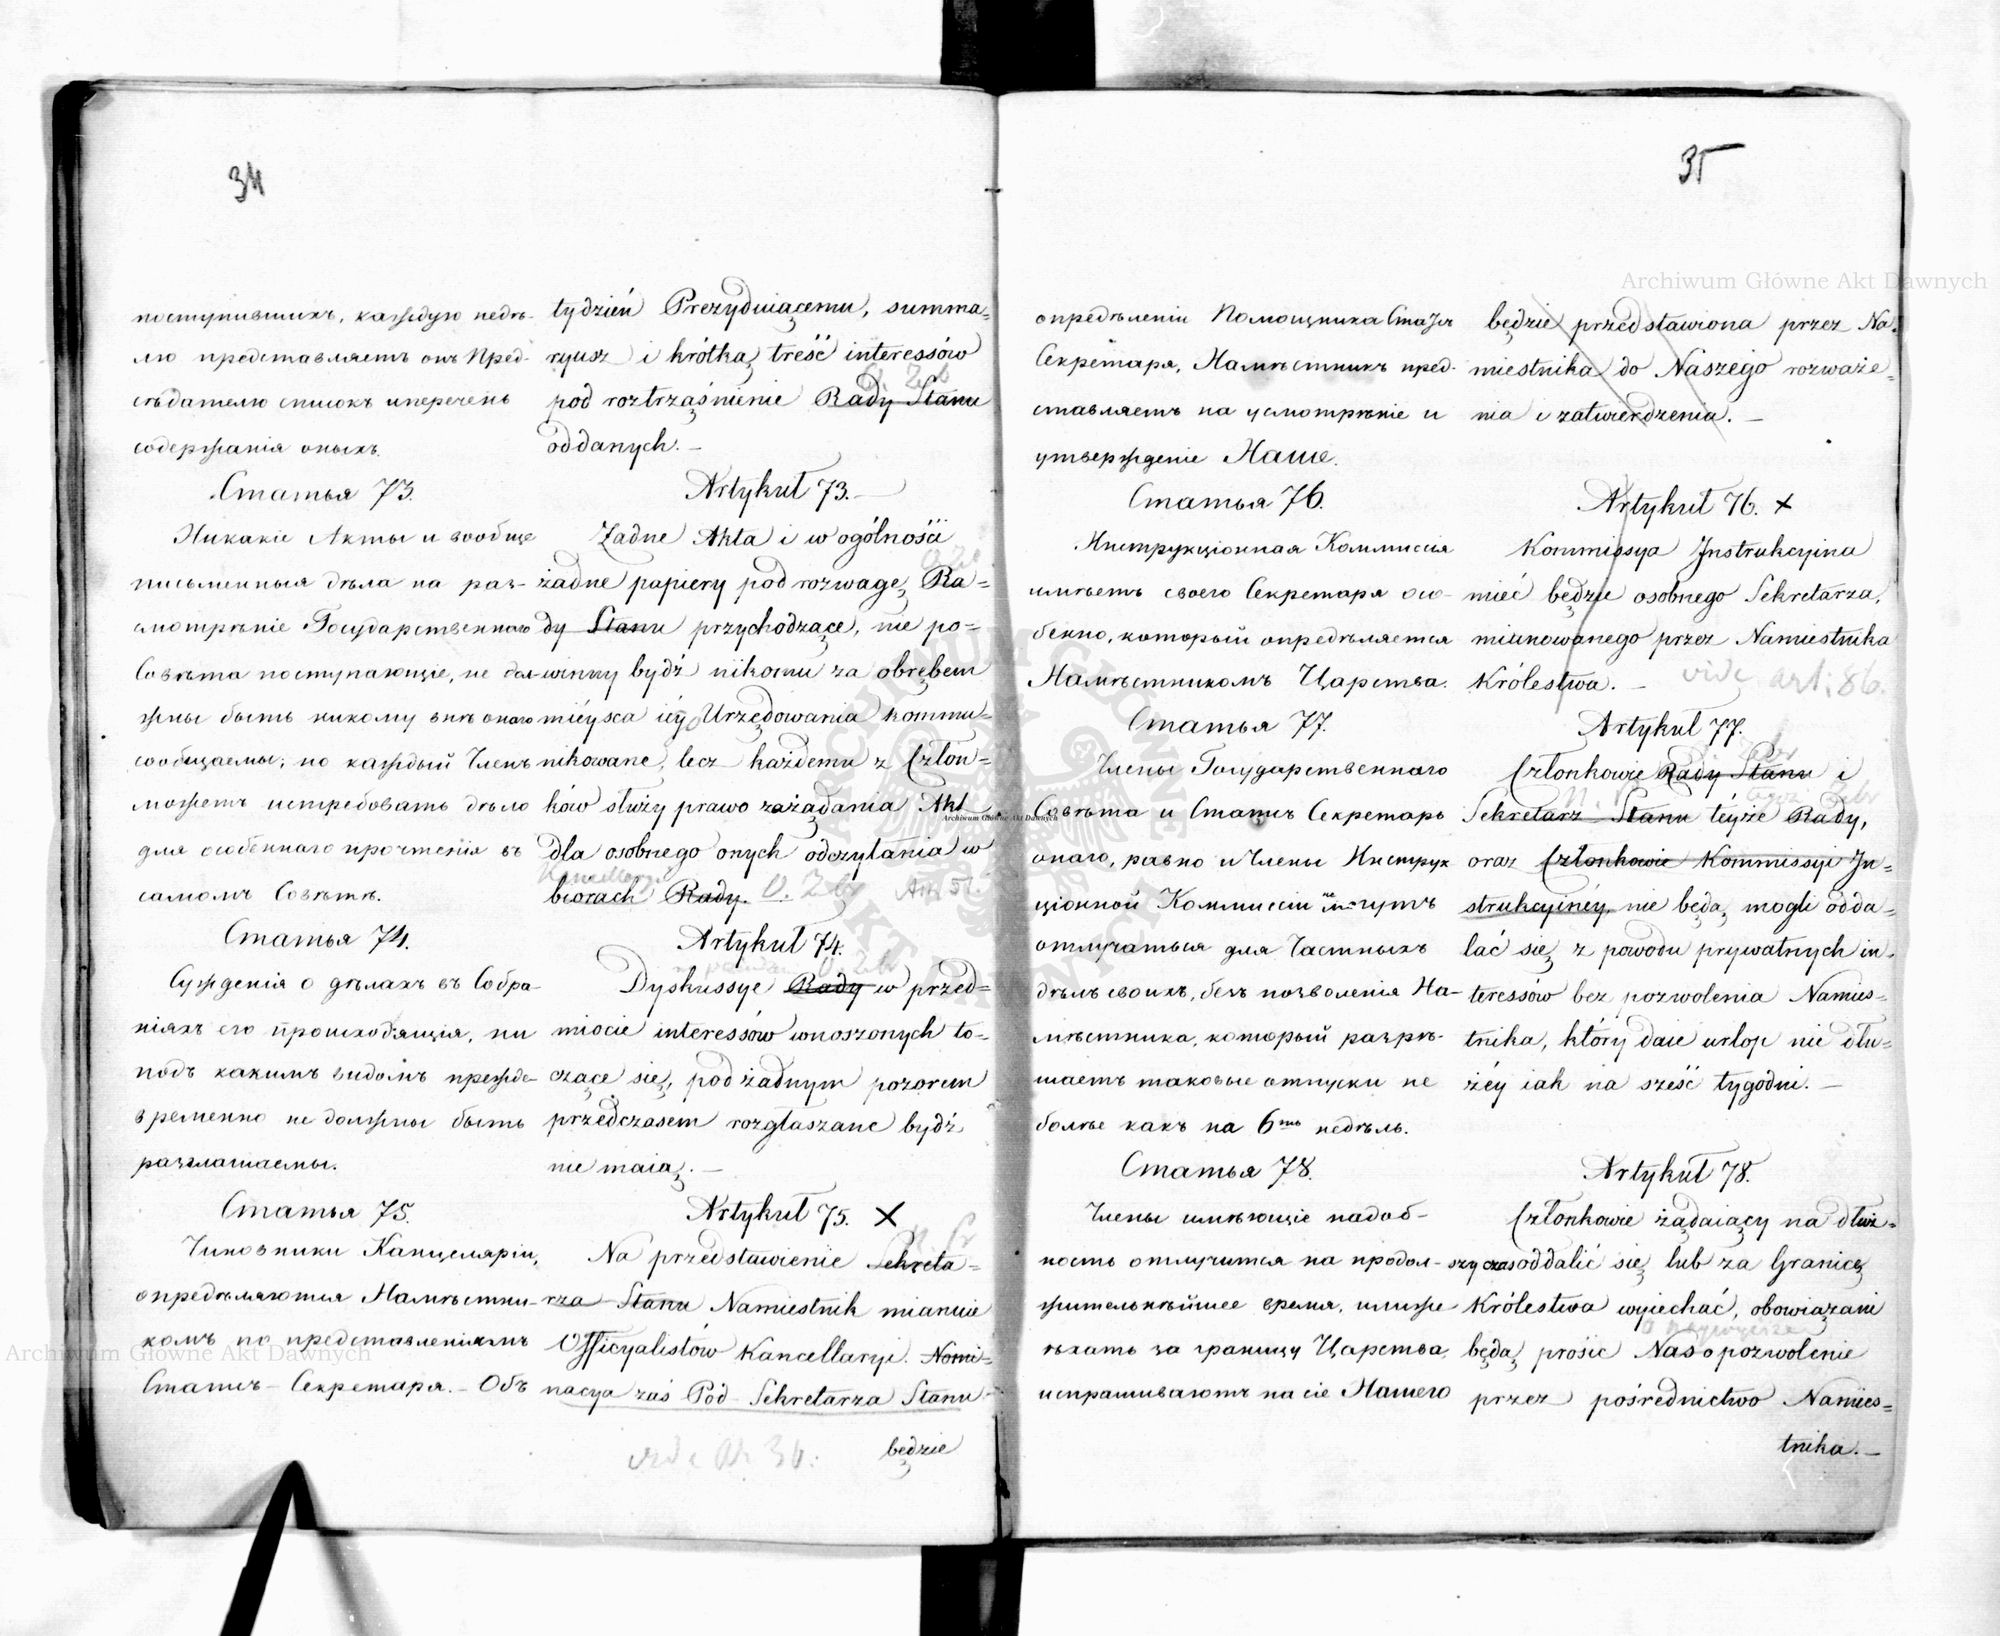 34
поступившихъ, каждую недѣ-
лю представляетъ онъ Пред-
сѣдателю списокъ и перечень
содержанія оныхъ.
Статья 73.
Никакіе Акты и вообще
письменныя дѣла на раз-
смотрѣніе Государственнаго
Совѣта поступающіе, не дол-
жны быть никому внѣ онаго
сообщаемы; но каждый Членъ
можетъ истребовать дѣло
для особеннаго прочтенія въ
самомъ Совѣтѣ.
Статья 74.
Сужденія о дѣлахъ въ Собра-
ніяхъ его происходящія, ни
подъ какимъ видомъ прежде-
временно не должны быть
разглашаемы.
Статья 75.
Чиновники Канцеляріи,
опредѣляются Намѣстни-
комъ по представленіямъ
Статсъ-Секретаря. - Объ
tydzień Prezyduiącemu, summa=
ryusz i krótką treść interessów
pod roztrząśnienie Rady Stanu
oddanych. -
Artykuł 73. -
Żadne Akta i w ogólności
żadne papiery pod rozwagę Ra=
dy Stanu przychodzące, nie po=
winny bydź nikomu za obrębem
mieysca iéy Urzędowania kommu=
nikowane, lecz każdemu z Człon=
ków służy prawo zażądania Akt
dla osobnego onych odczytania w
biorach Rady. O. Zby Art. 51.
Artykuł 74.
Dyskussye Rady w przed=
miocie interessów wnoszonych to=
czące się, pod żadnym pozorem
przedczasem rozgłaszane bydź
nie maią. -
Artykuł 75. X
Na przedstawienie Sekreta=
rza Stanu Namiestnik mianuie
Officyalistów Kancellaryi. Nomi=
nacya zaś Pod-Sekretarza Stanu
będzie
vide Ar. 34.
35
опредѣленіи Помощника Статсъ
Секретаря, Намѣстникъ пред-
ставляетъ на усмотрѣніе и
утвержденіе Наше.
Статья 76.
Инструкціонная Коммиссія
имѣетъ своего Секретаря осо-
бенно, который опредѣляется
Намѣстникомъ Царства.
Статья 77.
Члены Государственнаго
Совѣта и Статсъ Секретарь
онаго, равно и Члены Инструк
ціонной Коммиссіи не могутъ
отлучаться для Частныхъ
дѣлъ своихъ, безъ позволенія На-
мѣстника, который разрѣ-
шаетъ таковые отпуски не
болѣе какъ на 6ть недѣль.
Статья 78.
Члены имѣющіе надоб-
ность отлучится на продол-
жительнѣйшее время, или же
ѣхать за границу Царства,
испрашиваютъ на сіе Нашего
będzie przedstawiona przez Na=
miestnika do Naszego rozważe=
nia i zatwierdzenia. -
Artykuł 76. x
Kommissya Instrukcyina
mieć będzie osobnego Sekretarza,
mianowanego przez Namiestnika
Królestwa. - vide art: 86.
Artykuł 77.
Członkowie Rady Stanu i
Sekretarz Stanu téyże Rady,
oraz Członkowie Kommissyi In=
strukcyinéy, nie będą mogli odda=
lać się z powodu prywatnych in=
teressów bez pozwolenia Namies=
tnika, który daie urlop nie dłu=
żéy iak na sześć tygodni. -
Artykuł 78.
Członkowie żądaiący na dłuż=
szy czas oddalić się lub za Granicę
Królestwa wyiechać, obowiązani
będą prosić Nas o pozwolenie
przez pośrednictwo Namies=
tnika. -
Archiwum Główne Akt Dawnych
Archiwum Główne Akt Dawnych
Archiwum Główne Akt Dawnych